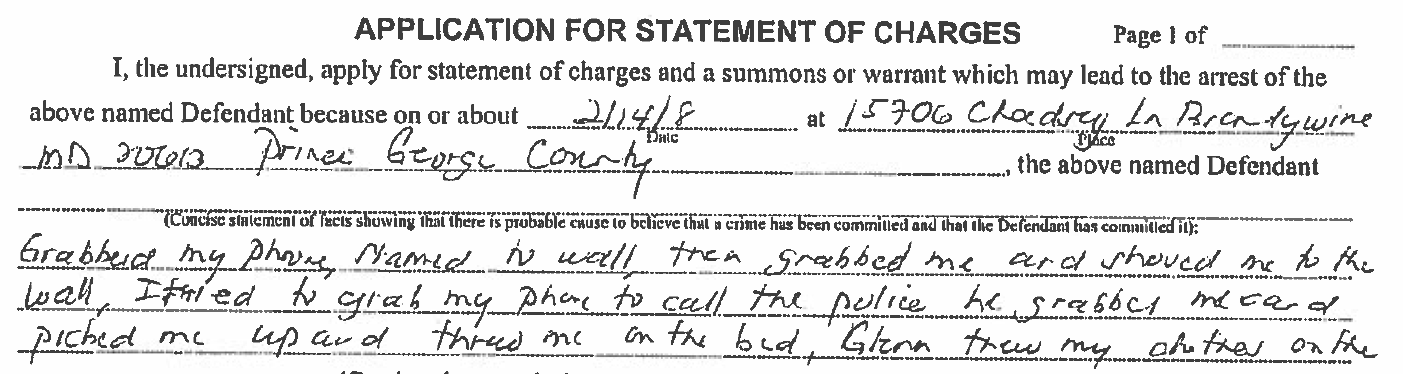 APPLICATION FOR STATEMENT OF CHARGES Page 1 of
I, the undersigned, apply for statement of charges and a summons or warrant which may lead to the arrest of the
above named Defendant because on or about 2/14/8 at 15706 Chadsey Ln Brandywine
Date Place
MD 20613 Prince George County, the above named Defendant
(Concise statement of facts showing that there is probable cause to believe that a crime has been committed and that the Defendant has committed it):
Grabbed my phone, slamed to wall, then grabbed me and shoved me to the
wall, I tried to grab my phone to call the police he grabbed me and
picked me up and threw me on the bed, Glenn threw my clothes on the